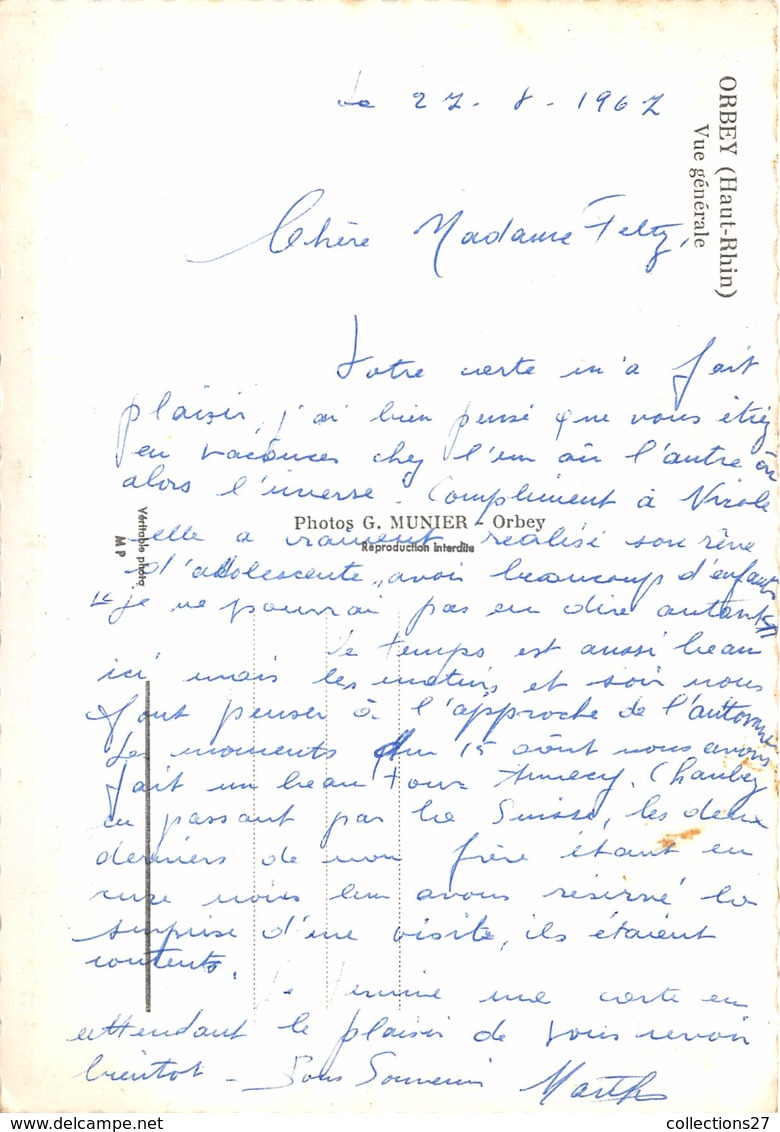 Le 27-8-1967
ORBEY (Haut-Rhin)
Vue générale
Chère Madame Feltz,
Votre carte m'a fait
plaisir, j'ai bien pensé que vous étiez
en vacances chez l'un où l'autre ou
alors l'inverse. Compliment à Nicole
Photos G. MUNIER - Orbey
Reproduction interdite
Véritable photo
M P
elle a vraiment réalisé son rêve
d'adolescente, avoir beaucoup d'enfants
"je ne pourrai pas en dire autant"
Le temps est aussi beau
ici mais les matins et soir nous
font penser à l'approche de l'automne
Les moments du 15 août nous avons
fait un beau tour Annecy,
en passant par la Suisse, les deux
derniers de mon frère étant en
cure nous leur avons réservé la
surprise d'une visite, ils étaient
contents.
Je termine une carte en
attendant le plaisir de vous revoir
bientot - Bons Souvenirs Marthe
collections27